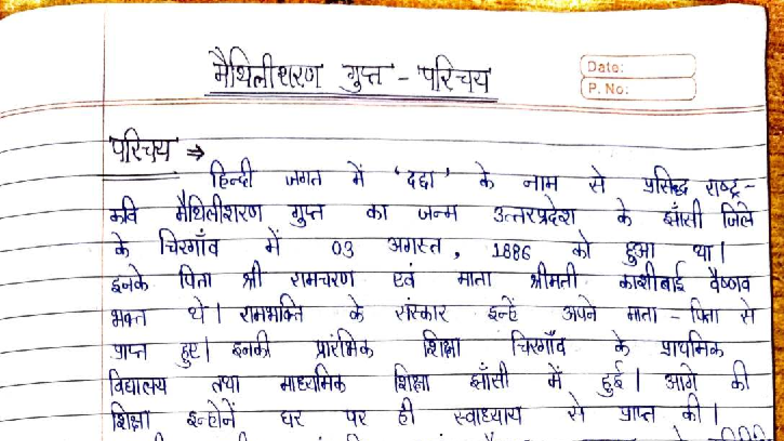 मैथिलीशरण गुप्त - परिचय
Date:
P. No:
परिचय ⇒
हिन्दी जगत में 'दद्दा' के नाम से प्रसिद्ध राष्ट्र-
कवि मैथिलीशरण गुप्त का जन्म उत्तरप्रदेश के झाँसी जिले
के चिरगाँव में 03 अगस्त, 1886 को हुआ था।
इनके पिता श्री रामचरण एवं माता श्रीमती काशीबाई वैष्णव
भक्त थे। रामभक्ति के संस्कार इन्हें अपने माता - पिता से
प्राप्त हुए। इनकी प्रारंभिक शिक्षा चिरगाँव के प्राथमिक
विद्यालय तथा माध्यमिक शिक्षा झाँसी में हुई। आगे की
शिक्षा इन्होनें घर पर ही स्वाध्याय से प्राप्त की।